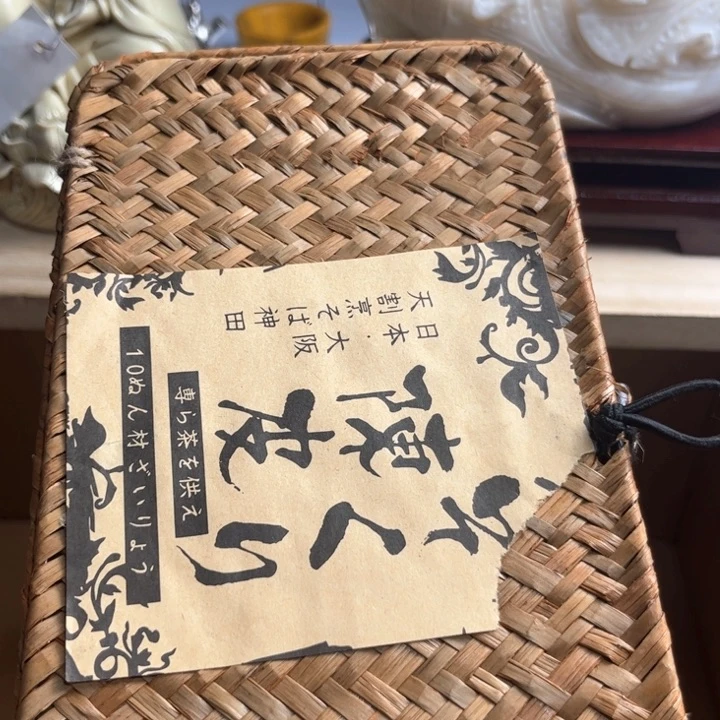 天割烹そば神田
日本・大阪
陳皮
くり
専ら茶を供え
10ぬん材ざいりょう